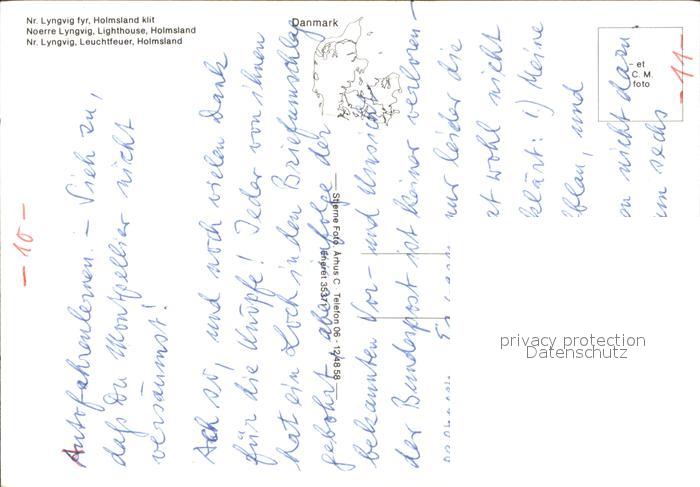 Nr. Lyngvig fyr, Holmsland klit
Noerre Lyngvig, Lighthouse, Holmsland
Nr. Lyngvig, Leuchtfeuer, Holmsland
Danmark
- et
C. M.
foto
Stjerne Foto, Århus C. Telefon 06 - 124858
Eneret 3537
- 10 -
Autofahrenlernen. - Sieh zu,
daß Du Montpellier nicht
versäumst!
Ach so, und noch vielen Dank
für die Knöpfe! Jeder von ihnen
hat ein Loch in den Briefumschlag
gebohrt, aber infolge der
bekannten Vor- und Umsicht
der Bundespost ist keiner verloren -
nur leider die
wohl nicht
klärt: 1) Meine
und
nicht dazu
sechs
- 11 -
privacy protection
Datenschutz